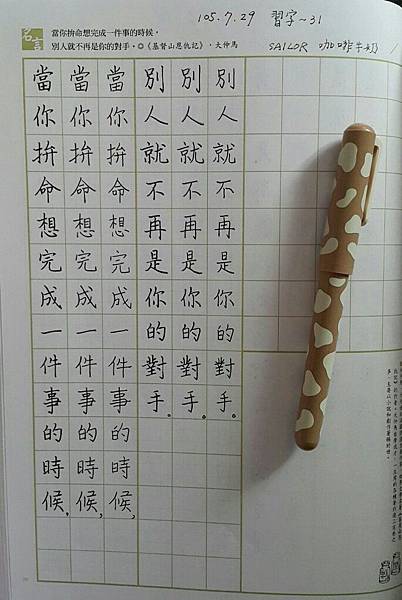 105.7.29 習字~31
SAILOR 咖啡牛奶
名言
當你拚命想完成一件事的時候，
別人就不再是你的對手。◎《基督山恩仇記》，大仲馬
當你拚命想完成一件事的時候，
當你拚命想完成一件事的時候，
當你拚命想完成一件事的時候，
別人就不再是你的對手。
別人就不再是你的對手。
別人就不再是你的對手。